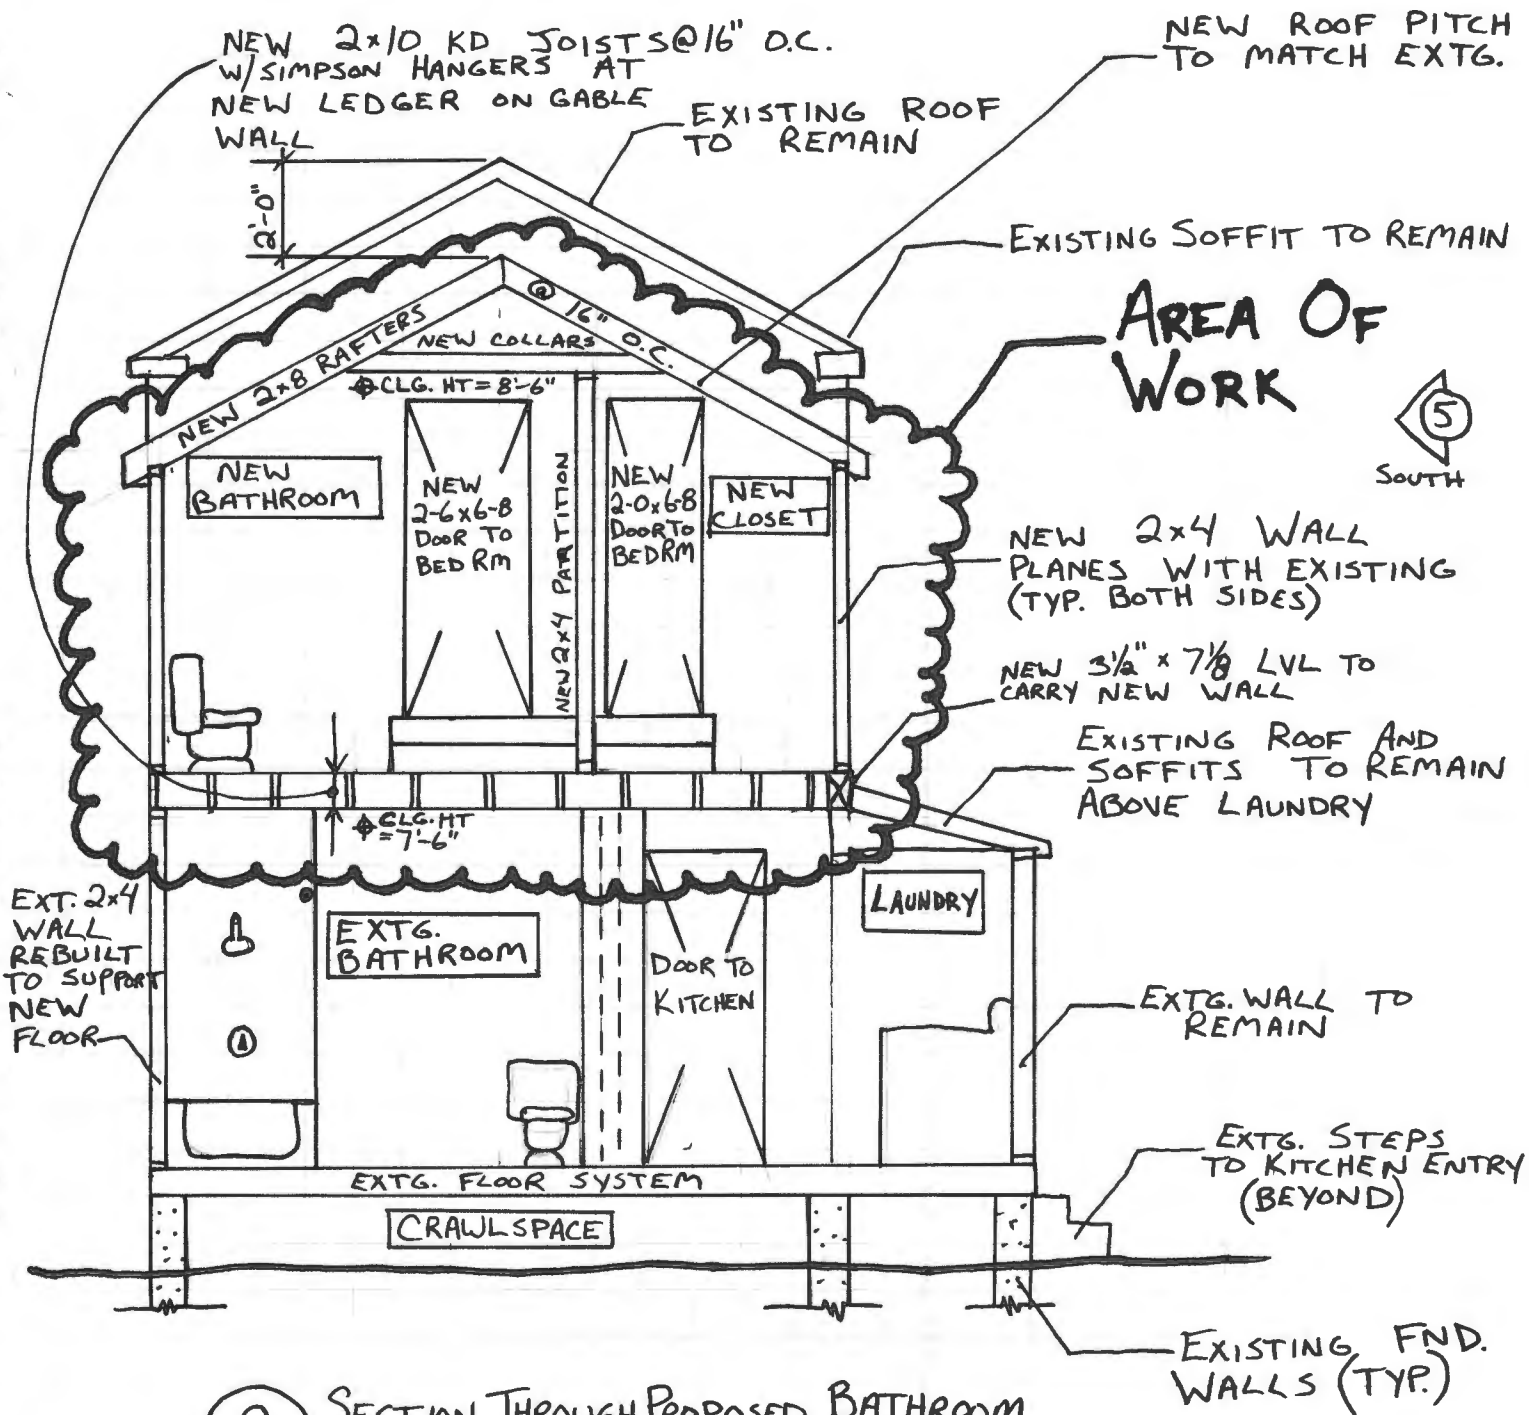 NEW 2x10 KD JOISTS@16" O.C.
W/SIMPSON HANGERS AT
NEW LEDGER ON GABLE
WALL
NEW ROOF PITCH
TO MATCH EXTG.
EXISTING ROOF
TO REMAIN
2'-0"
EXISTING SOFFIT TO REMAIN
AREA OF
WORK
5
SOUTH
NEW 2x8 RAFTERS
@ 16" O.C.
NEW COLLARS
CLG. HT = 8'-6"
NEW
BATHROOM
NEW
2-6x6-8
DOOR TO
BED RM
NEW 2x4 PARTITION
NEW
2-0x6-8
DOOR TO
BEDRM
NEW
CLOSET
NEW 2x4 WALL
PLANES WITH EXISTING
(TYP. BOTH SIDES)
NEW 3½" x 7⅛ LVL TO
CARRY NEW WALL
EXISTING ROOF AND
SOFFITS TO REMAIN
ABOVE LAUNDRY
CLG. HT
=7'-6"
EXT. 2x4
WALL
REBUILT
TO SUPPORT
NEW
FLOOR
EXTG.
BATHROOM
DOOR TO
KITCHEN
LAUNDRY
EXTG. WALL TO
REMAIN
EXTG. STEPS
TO KITCHEN ENTRY
(BEYOND)
EXTG. FLOOR SYSTEM
CRAWLSPACE
EXISTING FND.
WALLS (TYP.)
SECTION THROUGH PROPOSED BATHROOM